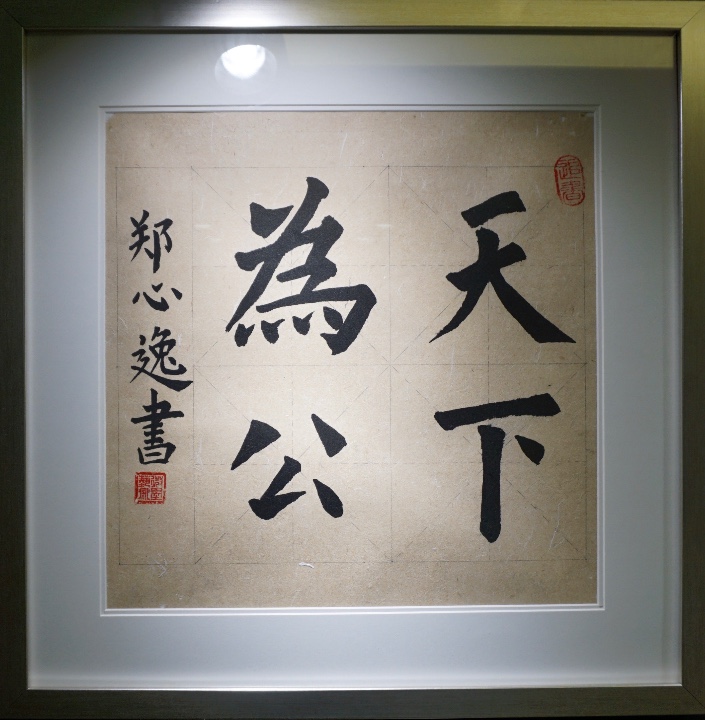 天下
為公
郑心逸書